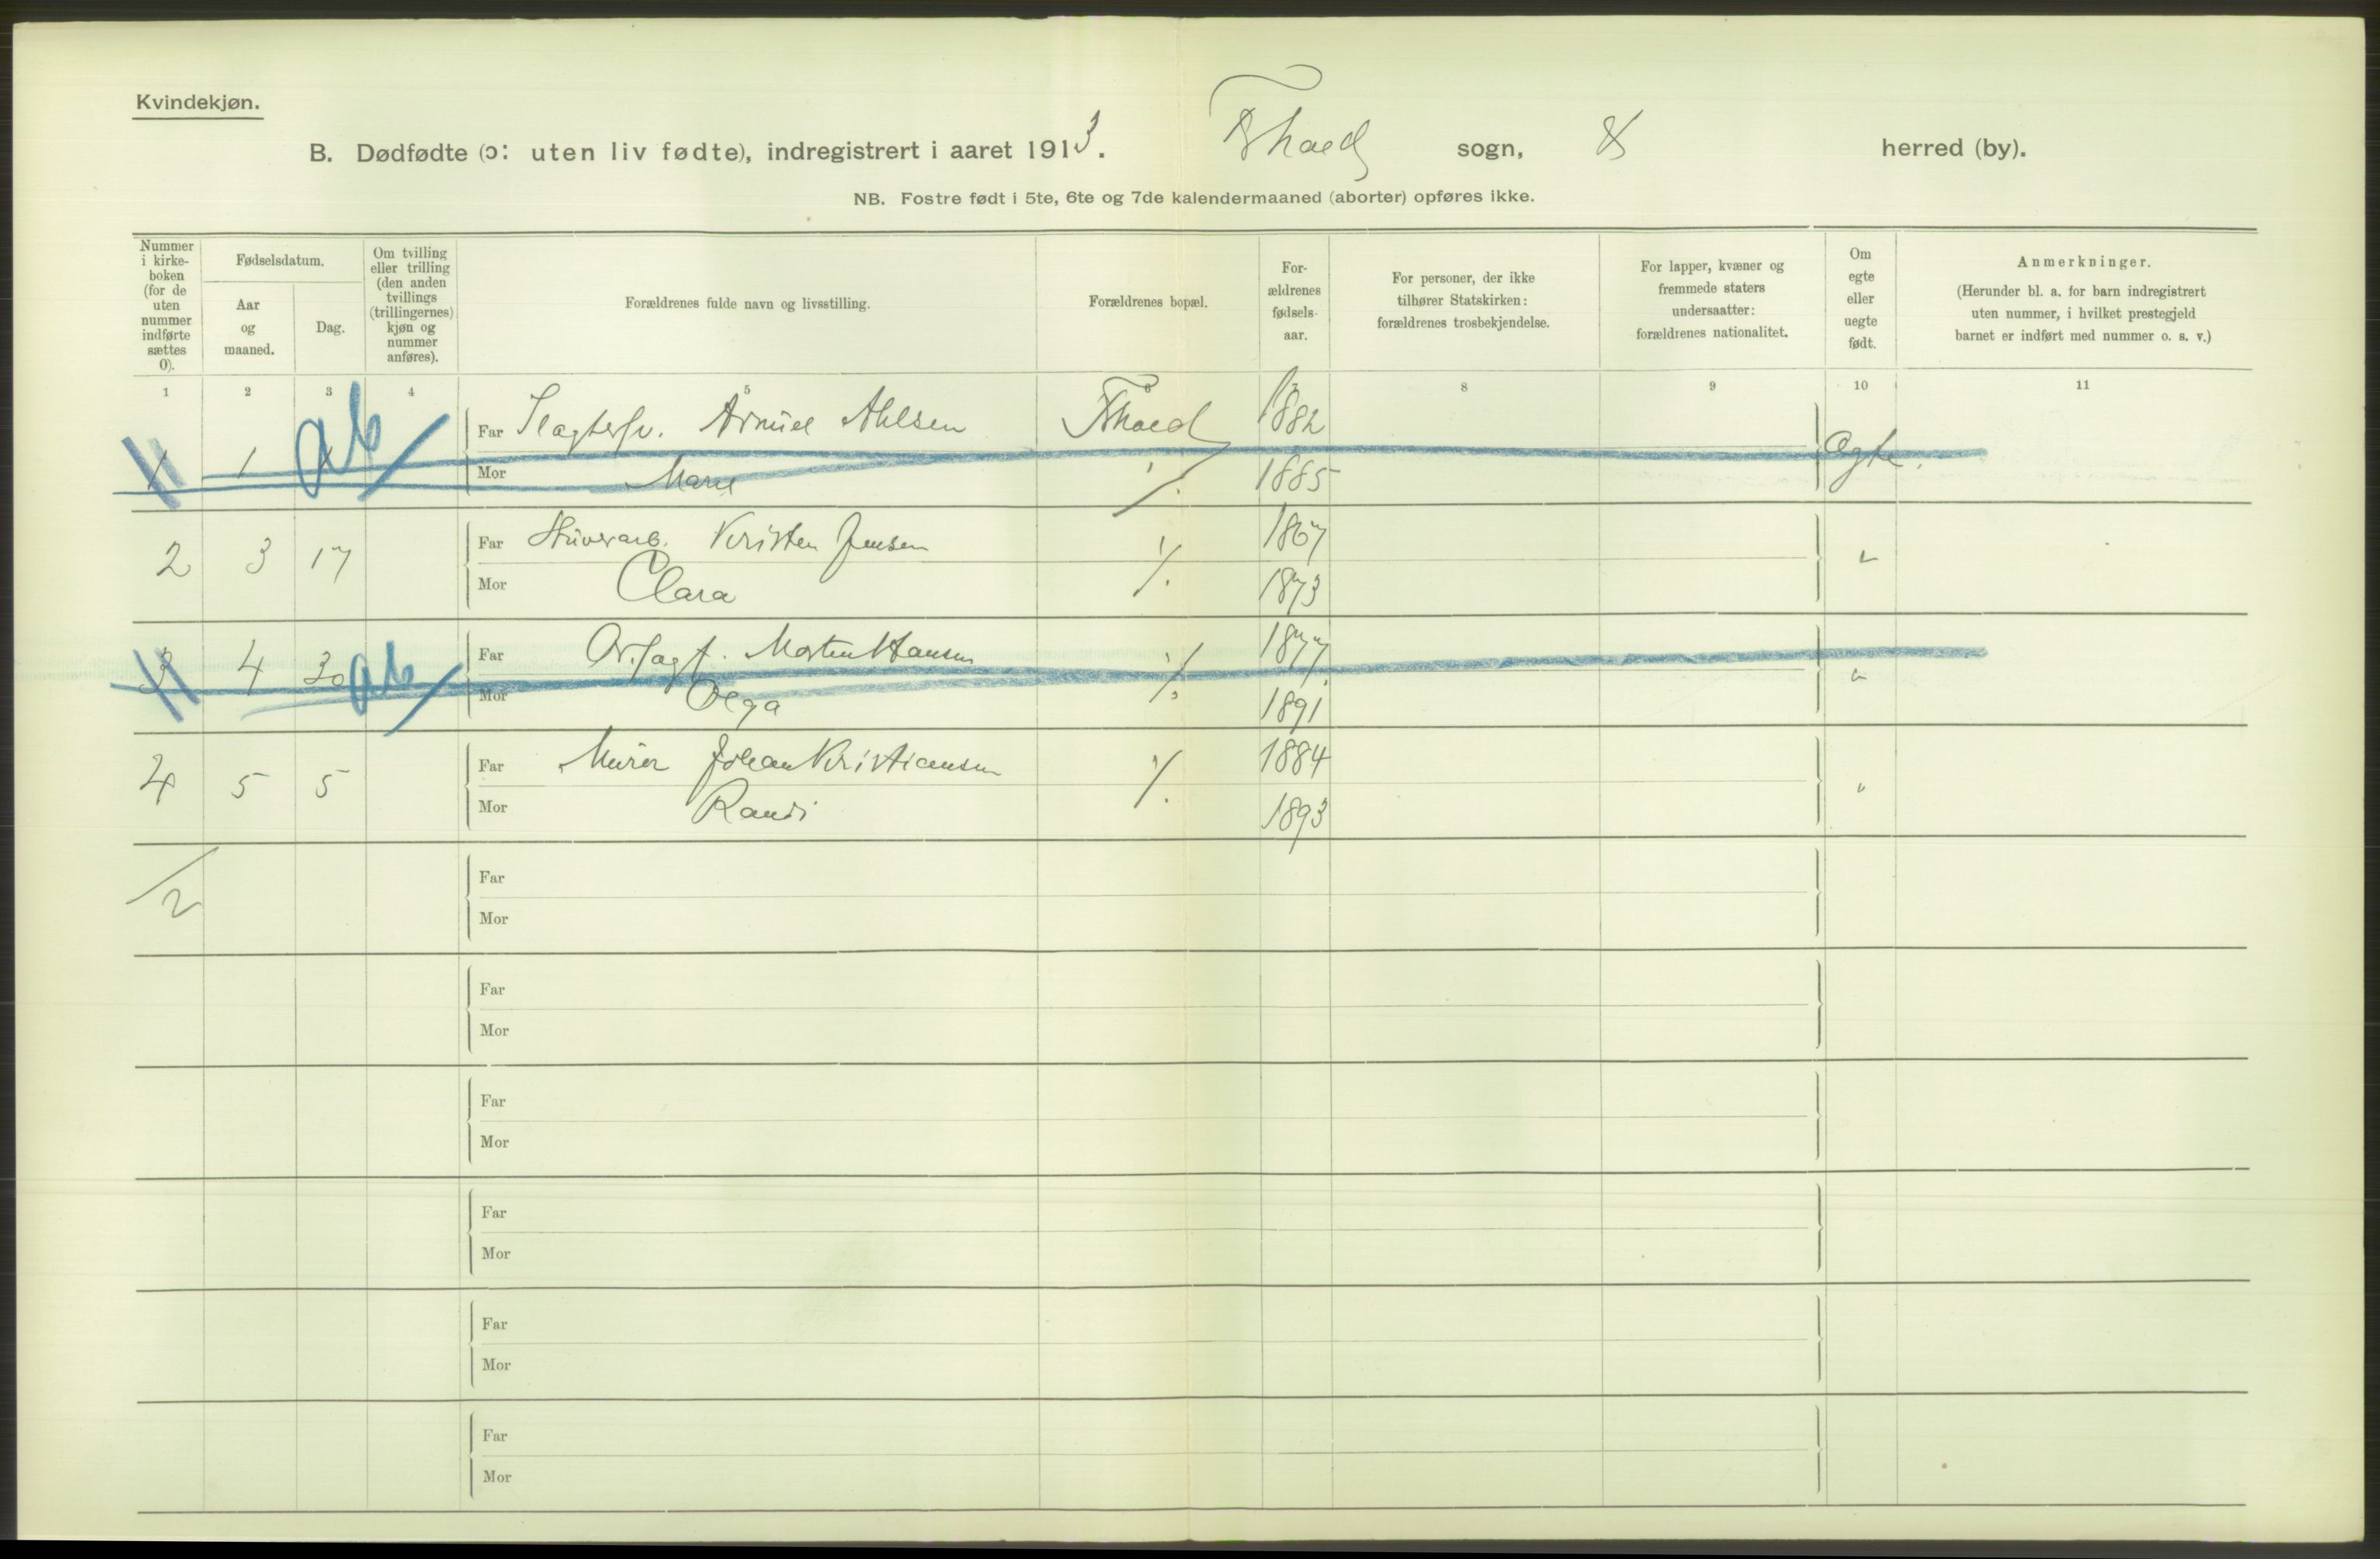 Kvindekjøn.
B. Dødfødte (ɔ: uten liv fødte), indregistrert i aaret 1913. sogn, herred (by).
NB. Fostre født i 5te, 6te og 7de kalendermaaned (aborter) opføres ikke.
Nummer i kirke- boken (for de uten nummer indførte sættes 0).
Fødselsdatum.
Aar og maaned.
Dag.
Om tvilling eller trilling (den anden tvillings (trillingernes) kjøn og nummer anføres).
Forældrenes fulde navn og livsstilling.
Forældrenes bopæl.
For- ældrenes fødsels- aar.
For personer, der ikke tilhører Statskirken: forældrenes trosbekjendelse.
For lapper, kvæner og fremmede staters undersaatter: forældrenes nationalitet.
Om egte eller uegte født.
Anmerkninger.
(Herunder bl. a. for barn indregistrert uten nummer, i hvilket prestegjeld barnet er indført med nummer o. s. v.)
1 2 3 4 5 6 7 8 9 10 11
1 1 ab Far Ahlsen 1882 Ægte.
Mor Marie 1885
2 3 17 Far Kristen Jensen 1867 "
Mor Clara 1873
3 4 30 ab Far Morten Hansen 1877 "
Mor Olga 1891
4 5 5 Far Murer Johan Kristiansen 1884 "
Mor Randi 1893
2 Far
Mor
Far
Mor
Far
Mor
Far
Mor
Far
Mor
Far
Mor